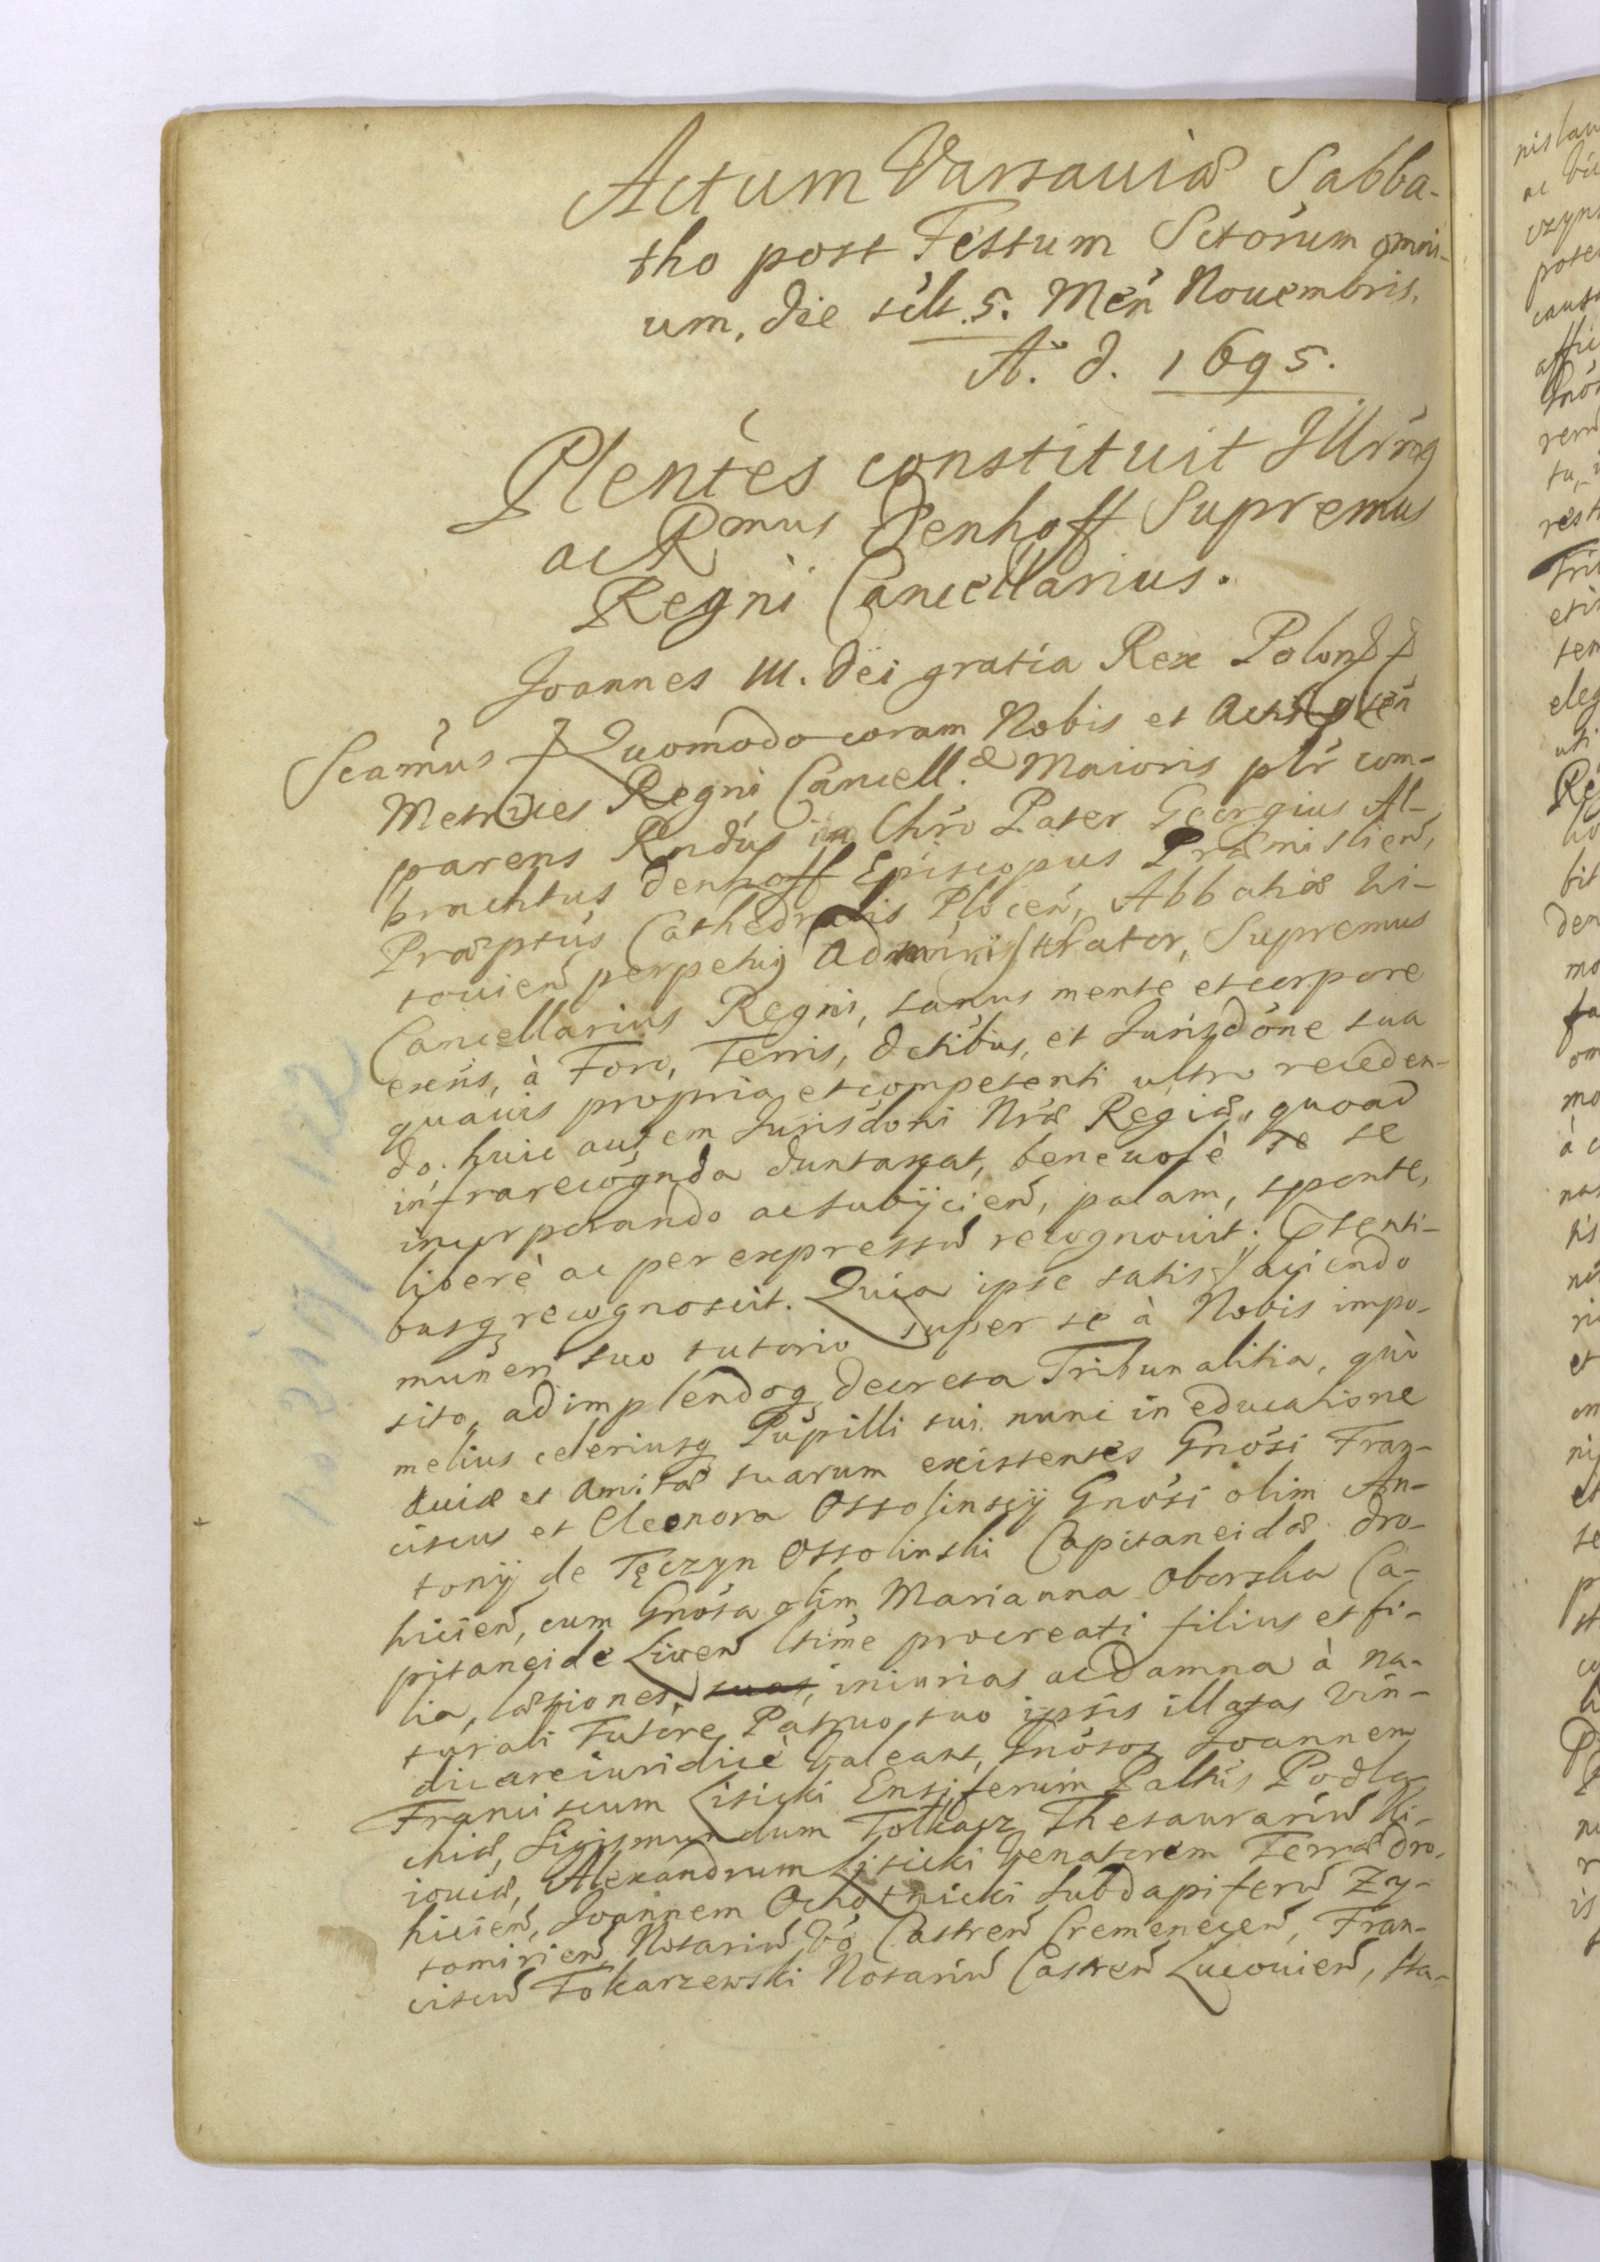 Actum Varsauiæ Sabba-
tho post Festum Sctorum omni-
um, die scilt 5. Men Nouembris.
Ao. d. 1695.
Plentes constituit Illrmg
ac Rmus Denhoff Supremus
Regni Cancellarius.
Joannes III. Dei gratia Rex Polon
Scamus Quomodo coram Nobis et Actis pten
Metrices Regni Cancell.æ Maioris plr com-
parens Rndus in Chro Pater Georgius Al-
brachtus Denhoff Episcopus Præmislien,
Præptus Cathedralis Plocen, Abbatiæ Wi-
touien perpetuq Administrator, Supremus
Cancellarius Regni, sanus mente et corpore
exns, à Foro, Terris, Dctibus, et Jurisdone sua
quauis propria et competenti ultro receden-
do. huic autem Jurisdoni Nræ Regiæ, quoad
infrarecognda duntaxat, beneuolè se se
incorporando ac subijcien, palam, sponte,
liberè ac per expressu recognouit; Ptenti-
busq recognoscit. Quia ipse satisfaciendo
muneri suo tutorio super se à Nobis impo-
sito, adimplendoq decreta Tribunalitia, quò
melius celeriusq Pupilli sui nunc in educatione
Auiæ et Amitæ suarum existentes Gnosi Fran-
ciscus et Eleonora Ossolinscij Gnosi olim An-
tonij de Tęczyn Ossolinski Capitaneidæ Dro-
hicien, cum Gnosa olim Marianna Oborska Ca-
pitaneide Liwen ltime procreati filius et fi-
lia, læsiones, suas, iniurias ac damna à na-
turali Tutore Patruo suo ipsis illatas vin-
dicare iuridicè valeant, Gnosos Joannem
Franciscum Lisicki Ensiferum Paltis Podla-
chiæ, Sigismundum Tolkacz Thesaurariu Ki-
iouiæ, Alexandrum Lisicki Venatorem Terræ Dro-
hicien, Joannem Ochotnicki Subdapiferu Zy-
tomirien Notariu Vo Castren Cremenecen, Fran-
ciscu Tokarzewski Notariu Castren Lucouien, Sta-